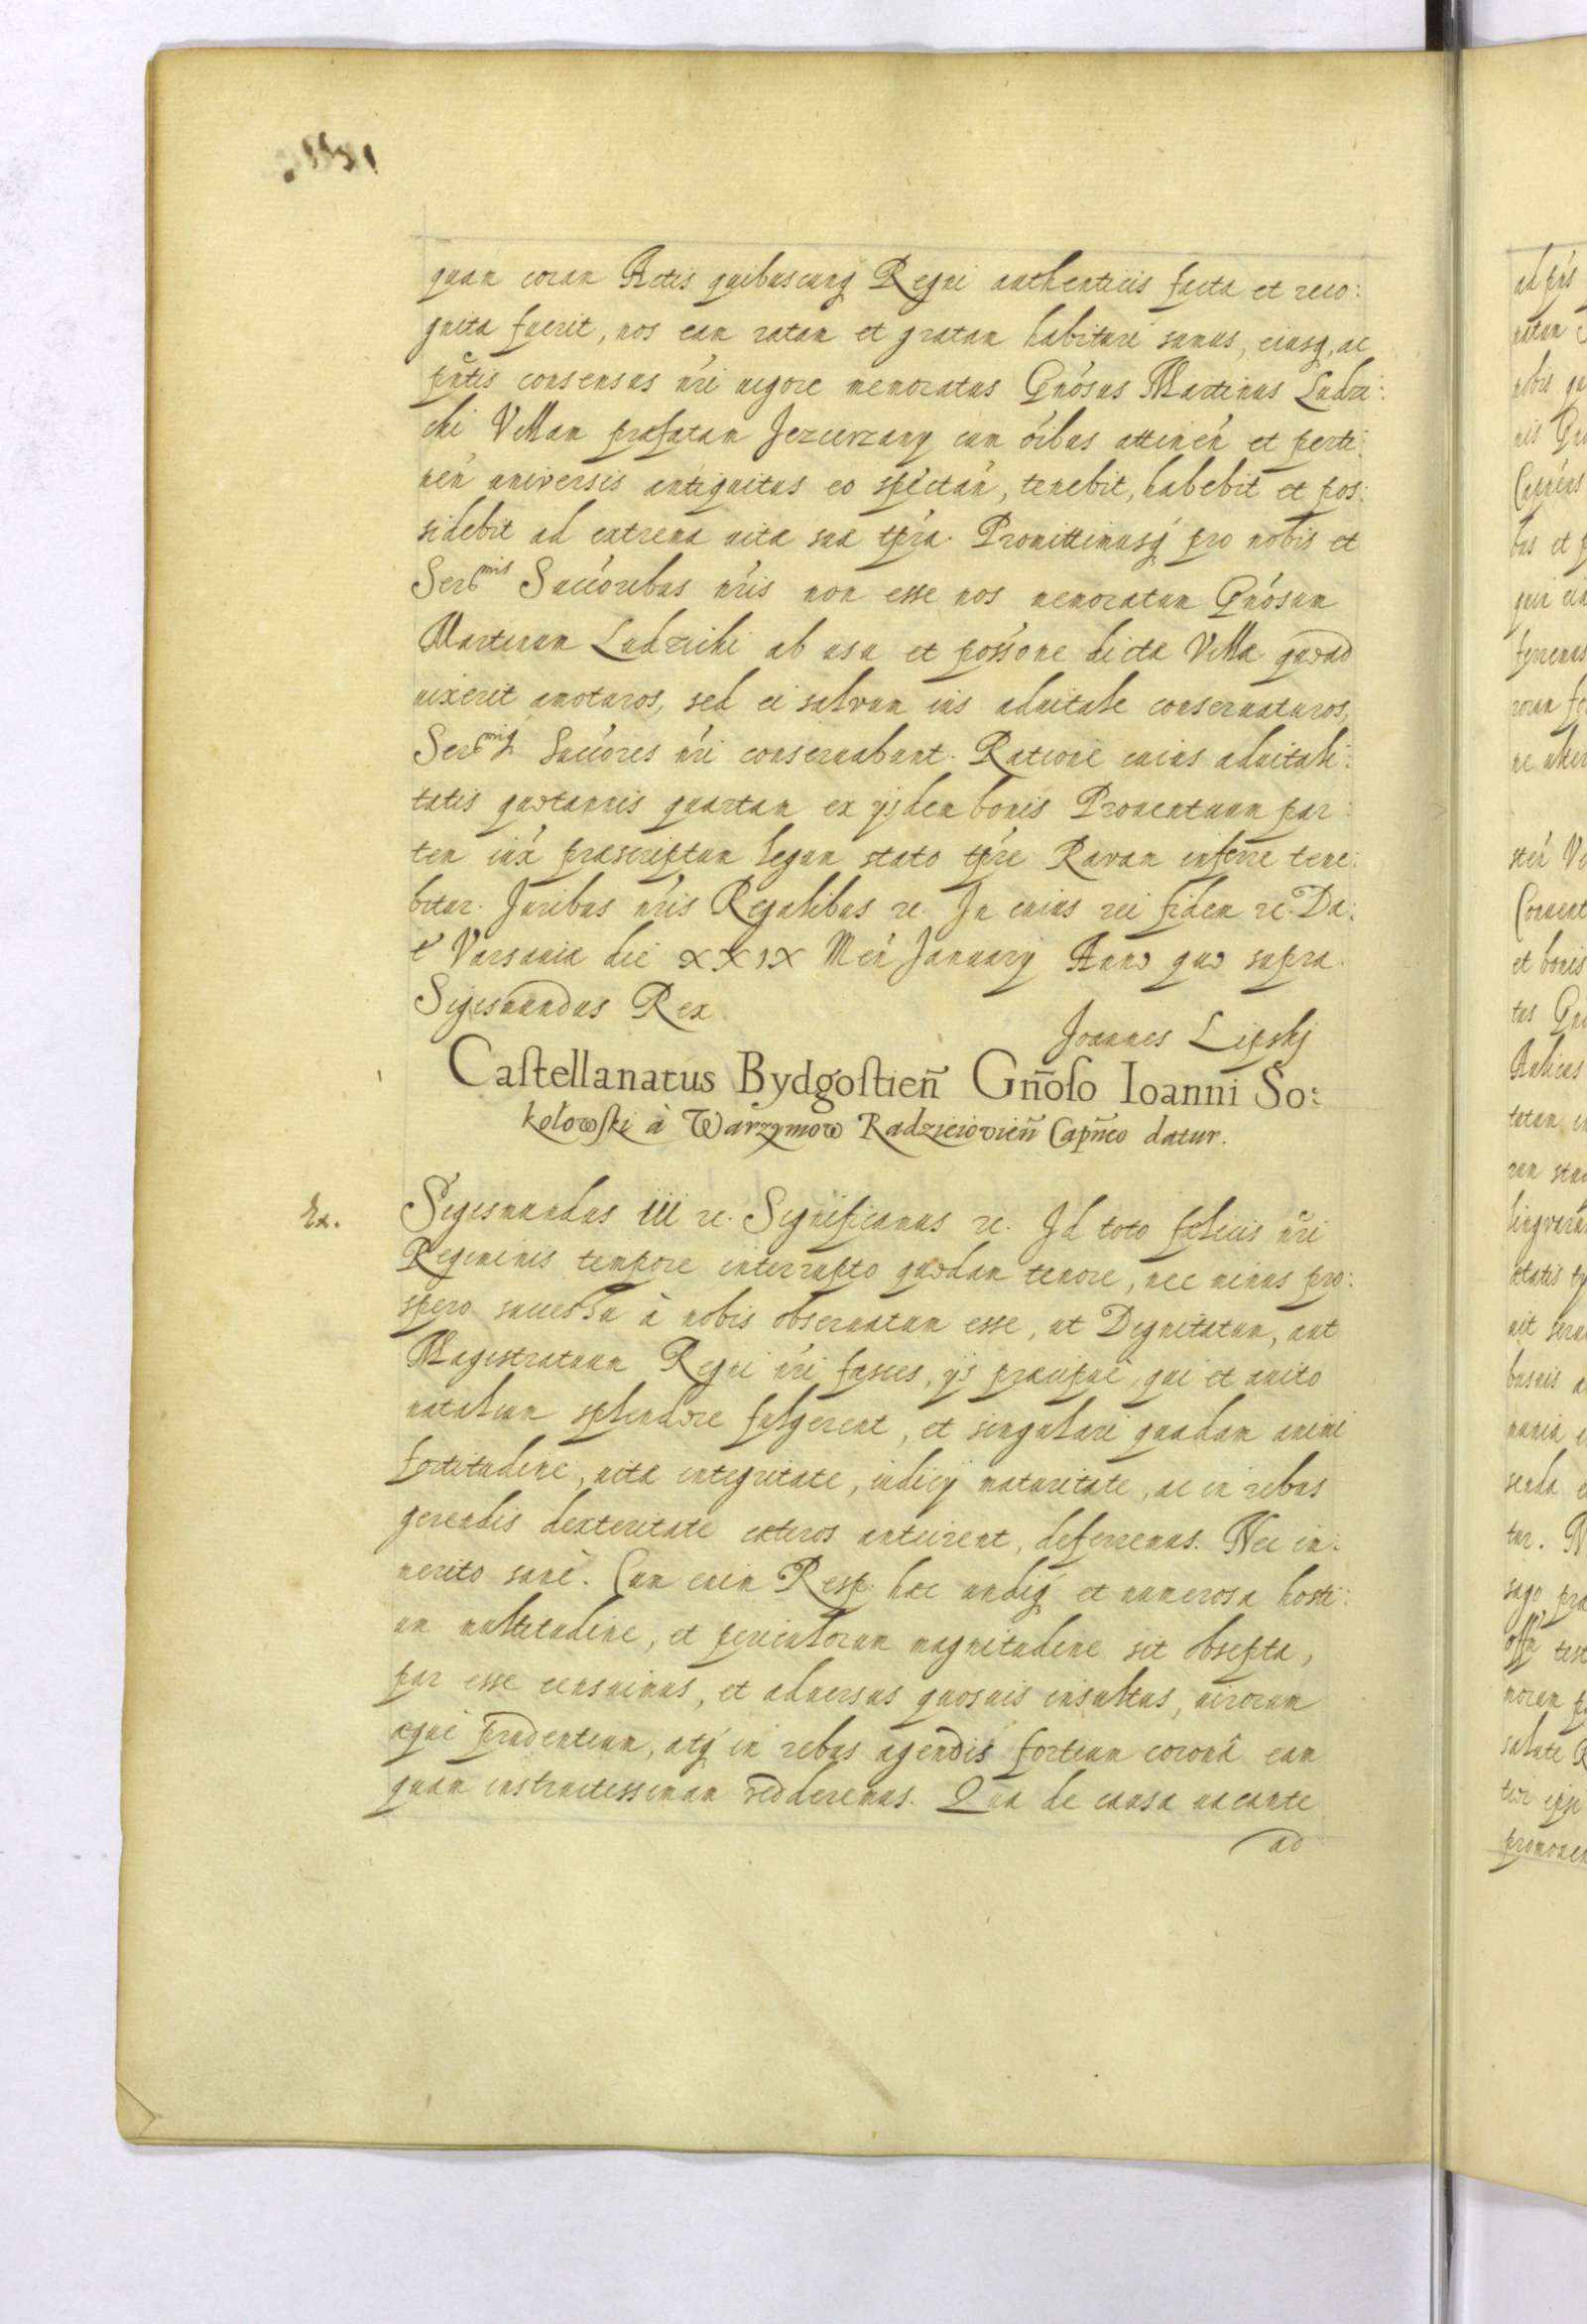 quam coram Actis quibuscunq Regni authenticis facta et reco:
gnita fuerit, nos eam ratam et gratam habituri sumus, eiusq, ac
pñtis consensus ñri uigore memoratus Gnósus Martinus Ludzi:
cki Villam præfatam Jezierzany cum óibus attineń et perti:
neń universis antiquitus eo spectań, tenebit, habebit et pos:
sidebit ad extrema uitæ suæ tṕra. Promittimusq́ pro nobis et
Ser̃mis Succóribus ńris non esse nos memoratum Gnósum
Martinum Ludzicki ab usu et posśone dictæ Villæ quoad
uixerit amoturos, sed ei saluum ius aduitale conseruaturos,
Ser̃miq́ Succóres ńri conseruabunt. Ratione cuius aduitali:
tatis quotannis quartam ex ijsdem bonis Prouentuum par:
tem iux́ præscriptum legum stato tṕre Ravam inferre tene:
bitur. Juribus ńris Regalibus &c. In cuius rei fidem &c. Da:
t' Varsauiæ die XXIX Meń Januarij Anno quo supra.
Sigismundus Rex.
Joannes Lipskj
Castellanatus Bydgostień Gñoso Ioanni So:
kołowski à Warzymow Radzieiovień Capñeo datur.
Ex.
Sigismundus III &c. Significamus &c. Id toto felicis ñri
Regiminis tempore interrupto quodam tenore, nec minus pro:
spero successu à nobis obseruatum esse, ut Dignitatum, aut
Magistratuum Regni ńri fasces, ijs præcipuè, qui et auito
natalium splendore fulgerent, et singulari quadam animi
fortitudine, uitæ integritate, iudicij maturitate, ac in rebus
gerendis dexteritate cæteros anteirent, deferremus. Nec im:
merito sanè. Cum enim Resp: hæc undiq́ et numerosa hosti:
um multitudine, et periculorum magnitudine sit obsepta,
par esse censuimus, et aduersus quosuis insultus, uirorum
æquè prudentium, atq́ in rebus agendis fortium coronâ eam
quam instructissimam redderemus. Qua de causa uacante
ad